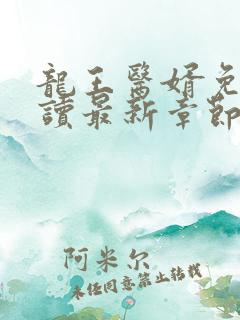 龍王醫婿免
讀最新章節
阿米尔
未经同意禁止转载